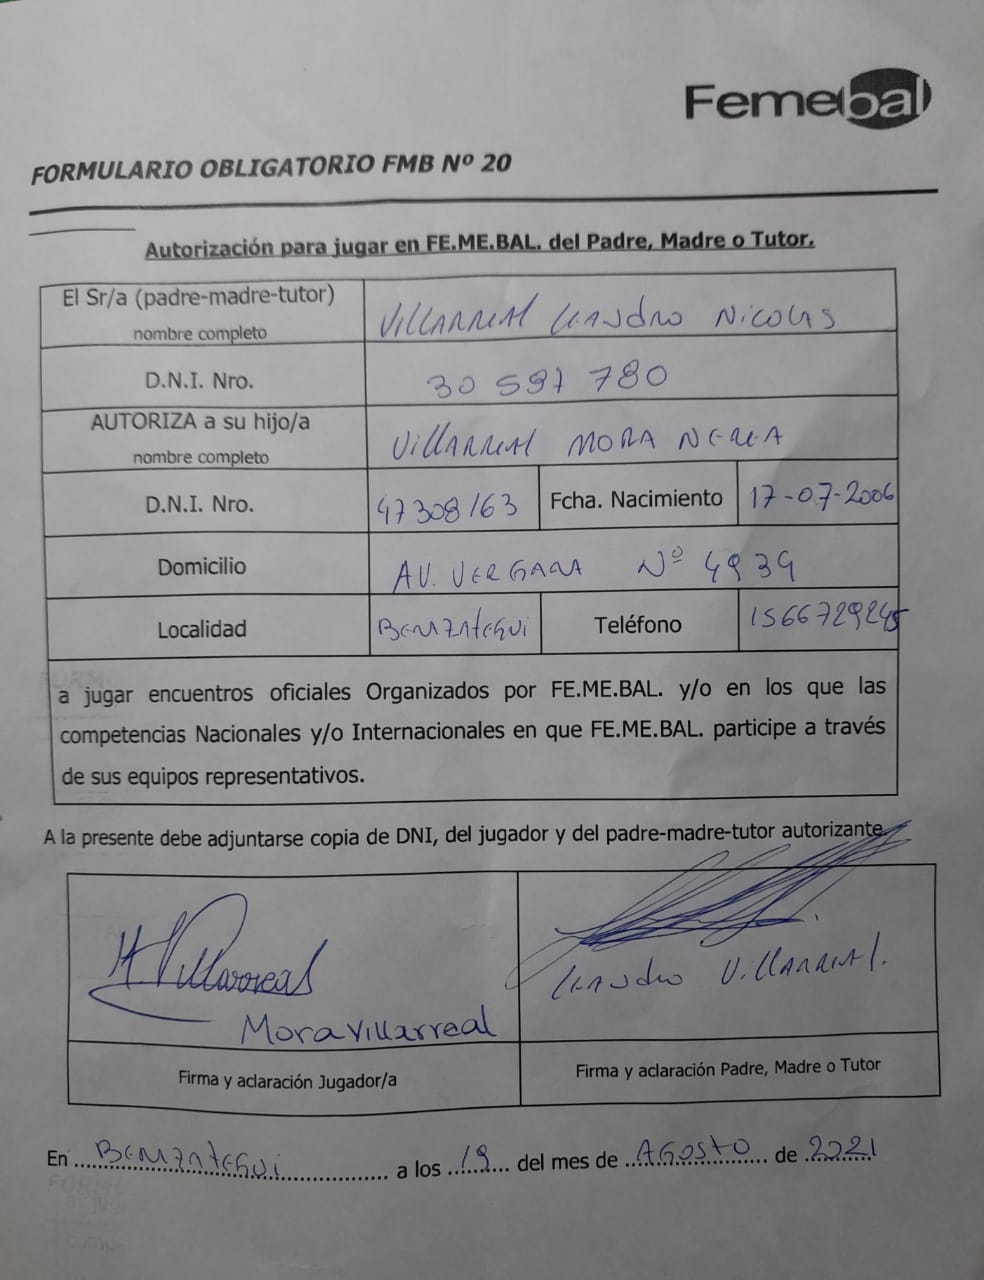 Femebal
FORMULARIO OBLIGATORIO FMB Nº 20
Autorización para jugar en FE.ME.BAL. del Padre, Madre o Tutor.
El Sr/a (padre-madre-tutor)
nombre completo
VILLARREAL LEANDRO NICOLAS
D.N.I. Nro. 30 591 780
AUTORIZA a su hijo/a
nombre completo
VILLARREAL MORA NEREA
D.N.I. Nro. 47308163 Fcha. Nacimiento 17-07-2006
Domicilio AV. VERGARA Nº 4939
Localidad BERAZATEGUI Teléfono 1566729245
a jugar encuentros oficiales Organizados por FE.ME.BAL. y/o en los que las
competencias Nacionales y/o Internacionales en que FE.ME.BAL. participe a través
de sus equipos representativos.
A la presente debe adjuntarse copia de DNI, del jugador y del padre-madre-tutor autorizante.
M.Villarreal
Mora Villarreal
LEANDRO VILLARREAL.
Firma y aclaración Jugador/a Firma y aclaración Padre, Madre o Tutor
En BERAZATEGUI a los 19 del mes de AGOSTO de 2021